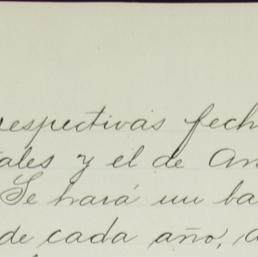 respectivas fech
ales y el de An
Se hará un ba
de cada año, a